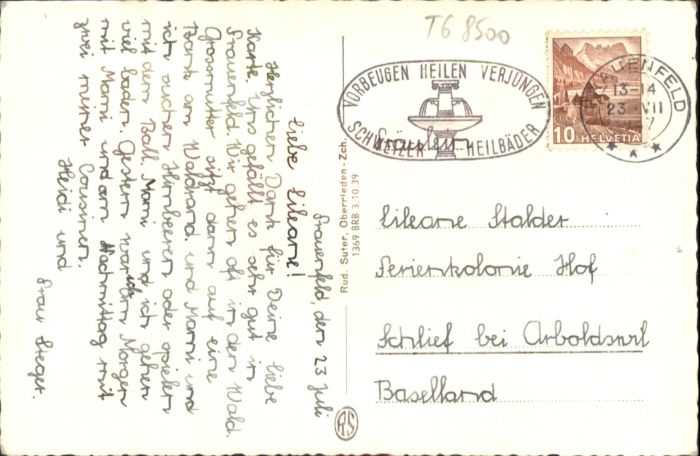 T6 8500
VORBEUGEN HEILEN VERJÜNGEN
SCHWEIZER HEILBÄDER
FRAUENFELD
13-14
23. VII
10 HELVETIA
Fräulein
Lileane Stalder
Ferienkolonie Hof
Schlief bei Arboldswil
Baselland
Rud. Suter, Oberrieden-Zch.
1369 BRB 3.10.39
RS
Frauenfeld, den 23 Juli
Liebe Lileane!
Herzlichen Dank für Deine liebe
Karte. Uns gefällt es sehr gut in
Frauenfeld. Wir gehen oft in den Wald.
Grossmutter sitzt dann auf eine
Bank am Waldrand, und Mami und
ich suchen Himbeeren oder spielen
mit dem Ball. Mami und ich gehen
viel baden. Gestern war ich am Morgen
mit Mami und am Nachmittag mit
zwei meiner Cousinen.
Heidi und
Frau Steger.